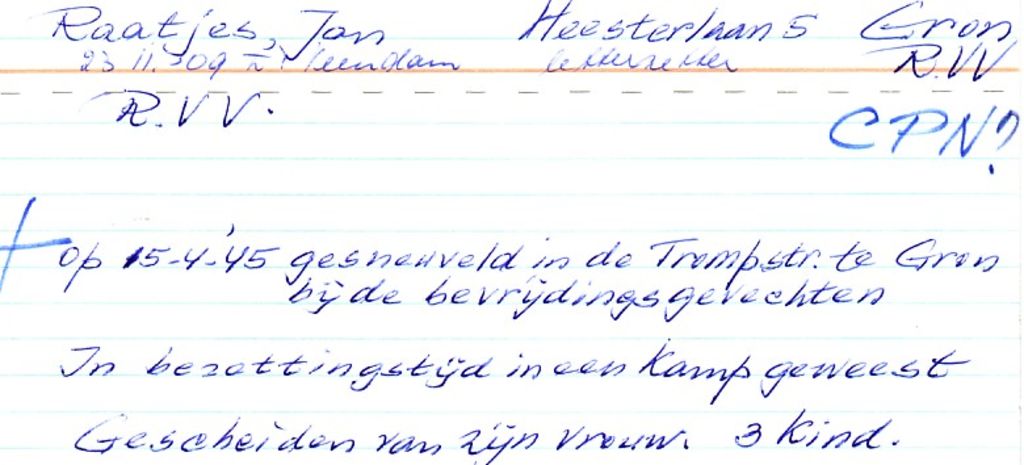 Raatjes, Jan Heesterlaan 5 Gron
23 11. '09 Veendam letterzetter R.VV
R.VV.
CPN?
op 15-4-'45 gesneuveld in de Trompstr. te Gron
bij de bevrijdingsgevechten
In bezettingstijd in een Kamp geweest
Gescheiden van zijn vrouw. 3 Kind.